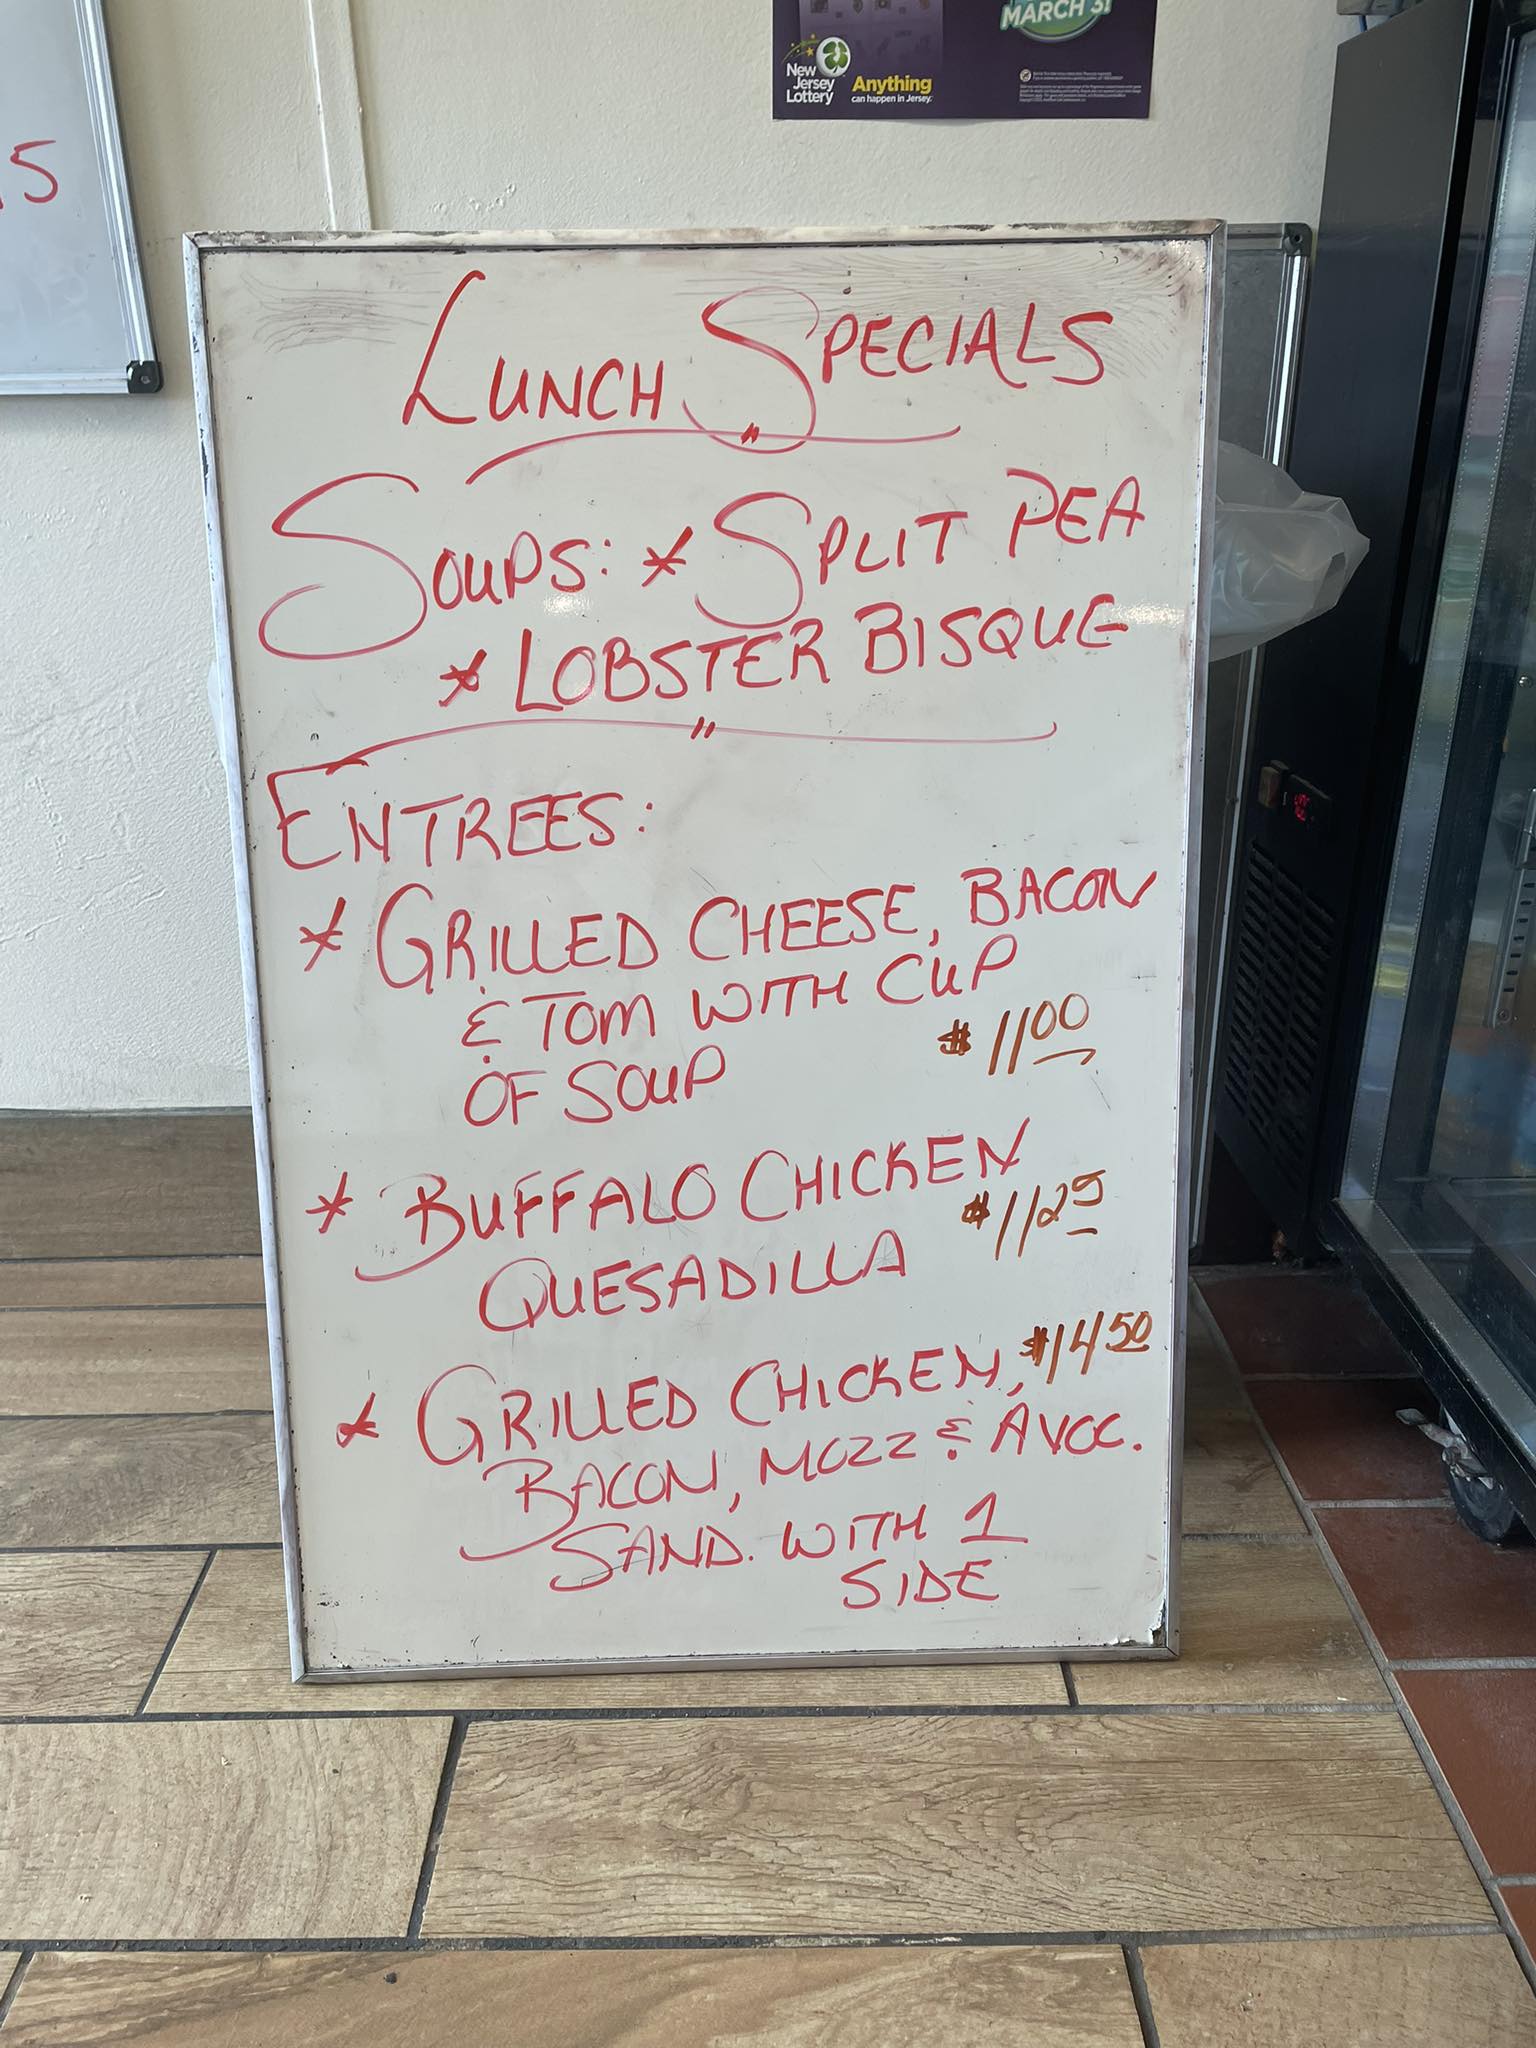 MARCH 31
New
Jersey
Lottery
Anything
can happen in Jersey.
.5
LUNCH SPECIALS
SOUPS: * SPLIT PEA
* LOBSTER BISQUE
ENTREES:
* GRILLED CHEESE, BACON
& TOM WITH CUP
OF SOUP $1100
* BUFFALO CHICKEN
QUESADILLA $1125
* GRILLED CHICKEN, $1450
BACON, MOZZ & AVOC.
SAND. WITH 1
SIDE